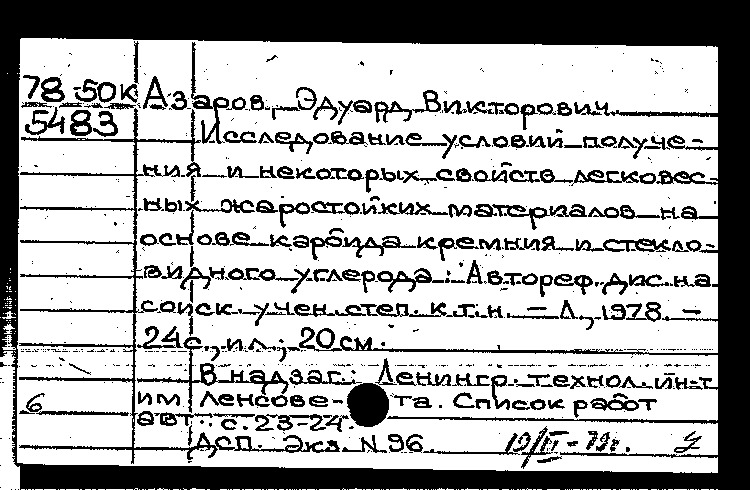 78-50к Азаров, Эдуард Викторович.
5483
Исследование условий получе-
ния и некоторых свойств легковес-
ных жаростойких материалов на
основе карбида кремния и стекло-
видного углерода: Автореф. дис. на
соиск. учен. степ. к.т.н. — Л., 1978. —
24с., ил.; 20см.
В надзаг.: Ленингр. технол. ин-т
6 им. Ленсове-та. Список работ
авт.: с. 23-24.
Дсп. Экз. N 96.